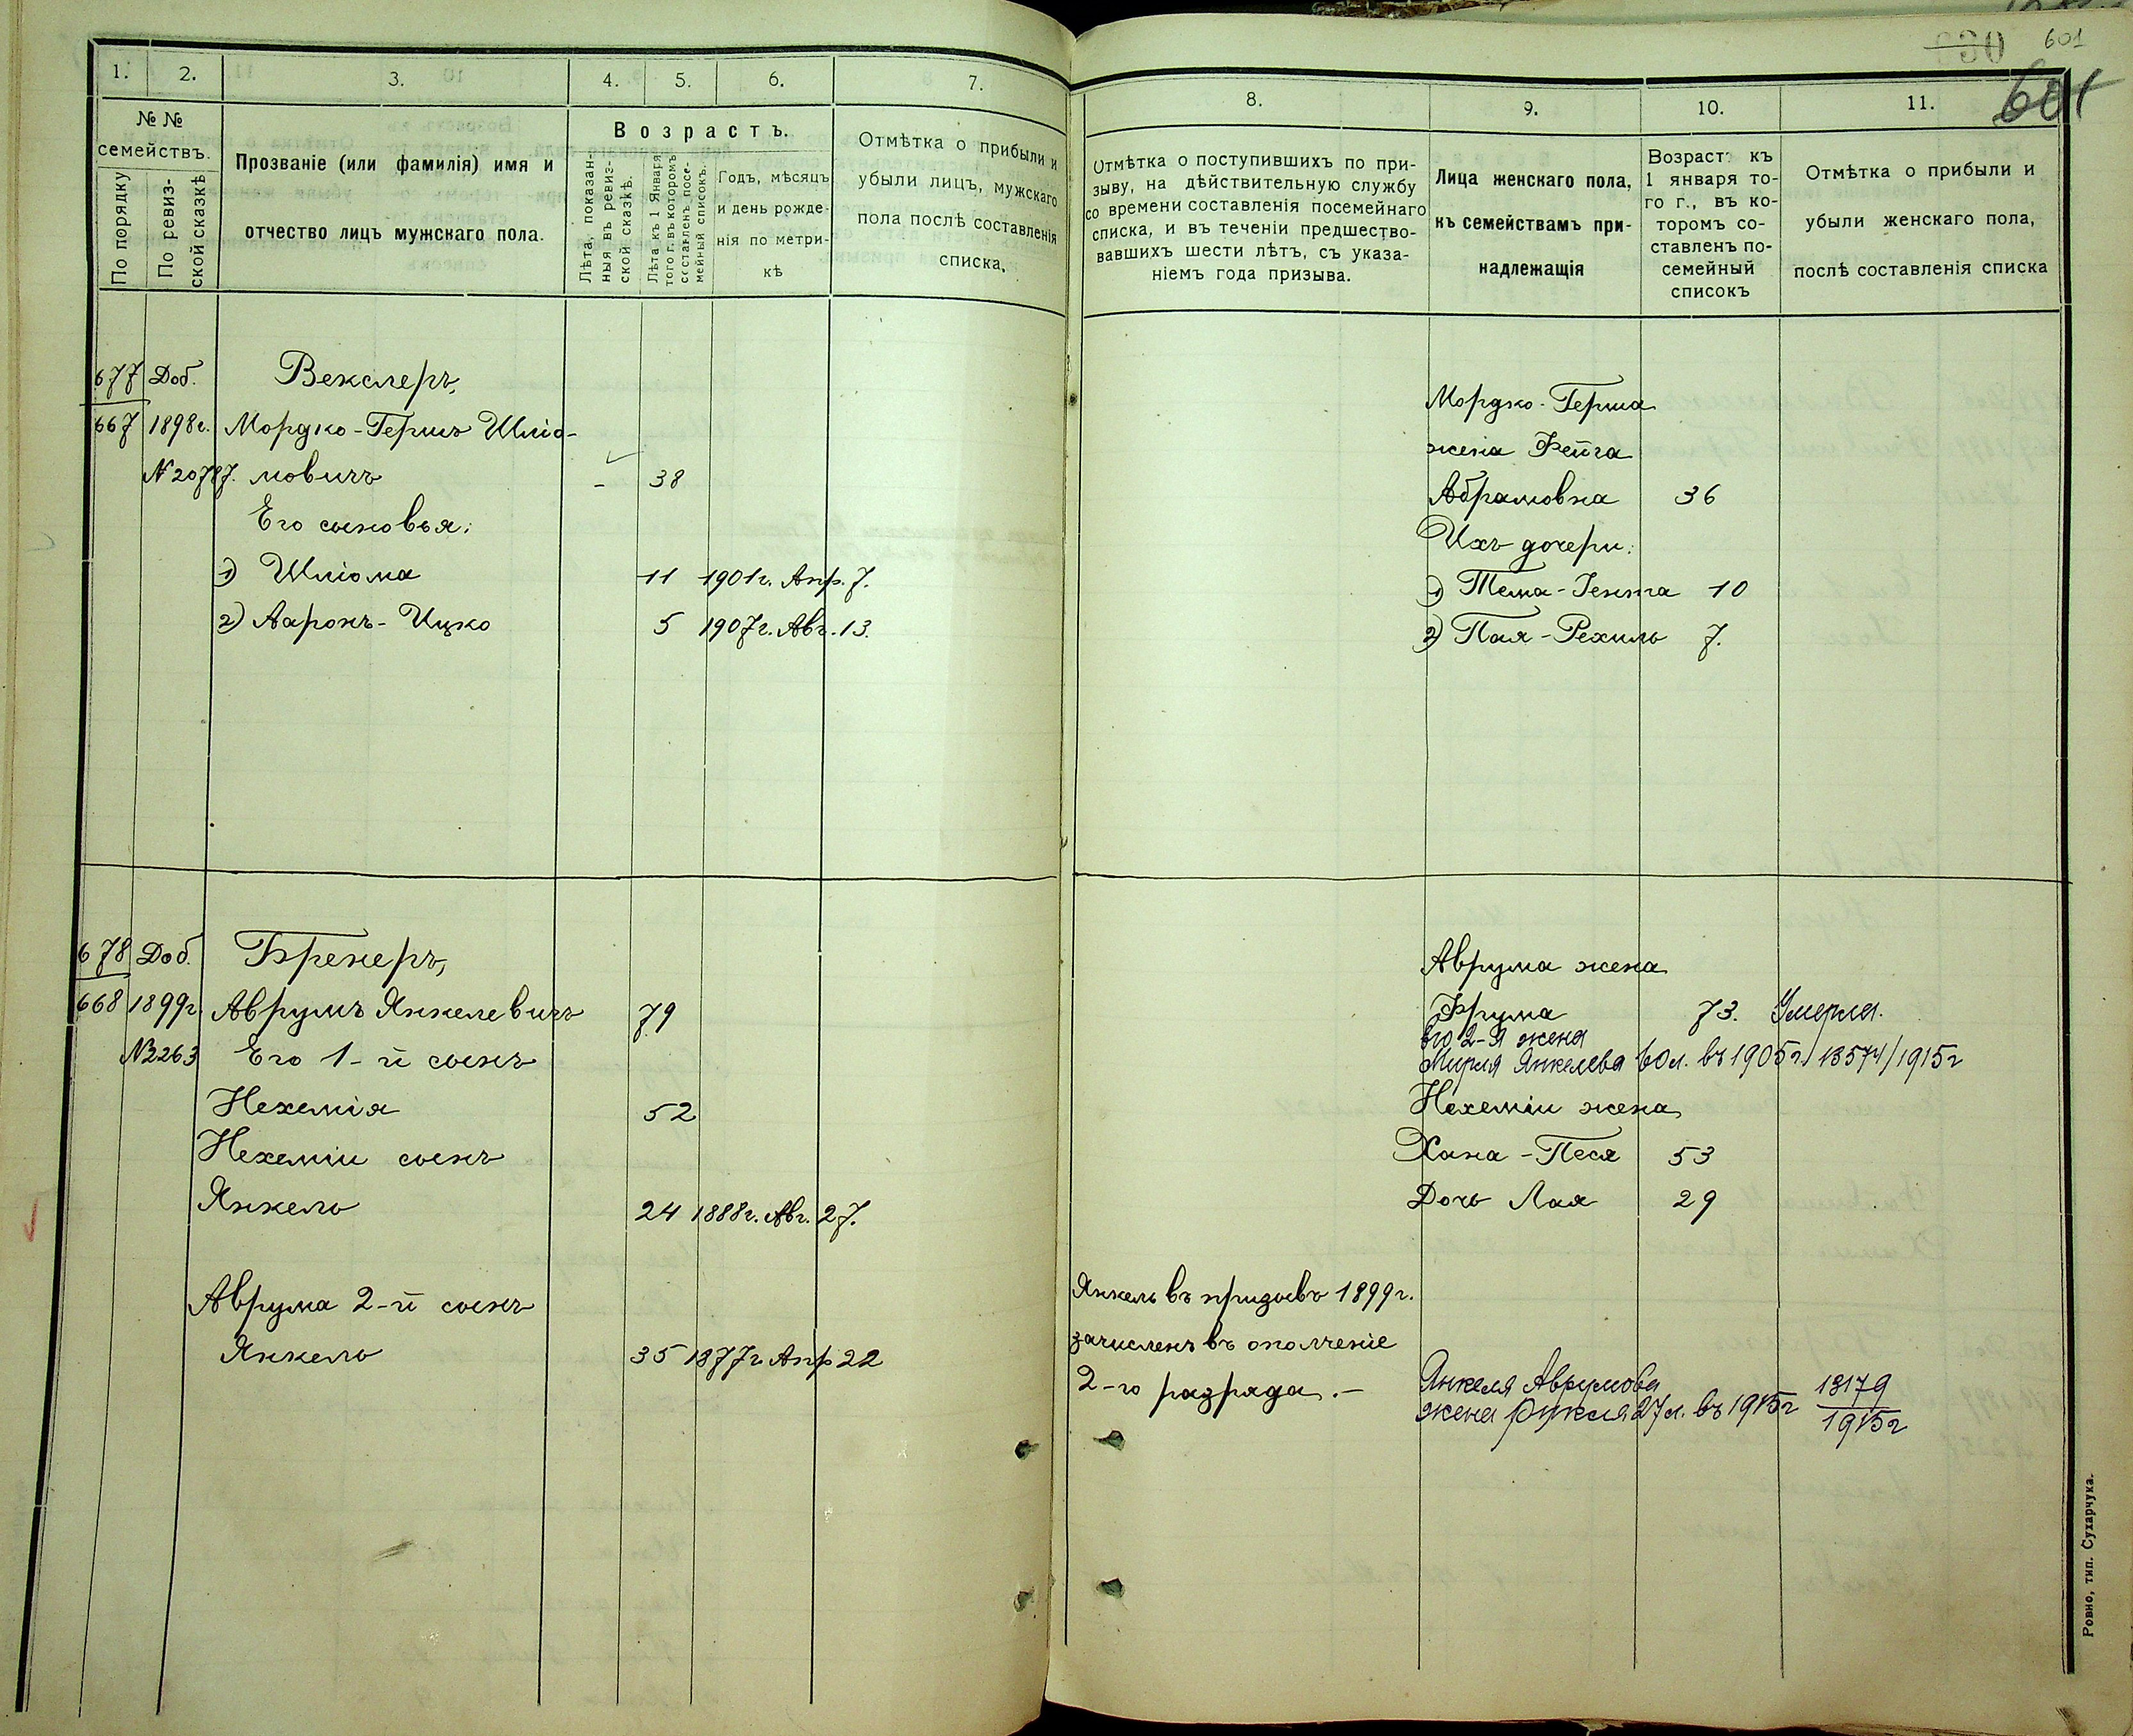 601
601
1.
2.
3.
4.
5.
6.
7.
№ №
семействъ.
По порядку
По ревиз-
ской сказкѣ
Прозваніе (или фамилія) имя и
отчество лицъ мужскаго пола.
Возрастъ.
Лѣта, показан-
ныя въ ревиз-
ской сказкѣ.
Лѣта къ 1 Января
того г. въ которомъ
составленъ посе-
мейный списокъ.
Годъ, мѣсяцъ
и день рожде-
нія по метри-
кѣ
Отмѣтка о прибыли и
убыли лицъ, мужскаго
пола послѣ составленія
списка.
677 Доб. Векслеръ,
667 1898г. Мордко-Гершъ Шліо-
№ 20787. мовичъ - 38
Его сыновья:
1) Шліома 11 1901г. Апр. 7.
2) Ааронъ-Ицко 5 1907г. Авг. 13.
678 Доб. Бренеръ,
668 1899г. Аврумъ Янкелевичъ 79
№2263 Его 1-й сынъ
Нехемія 52
Нехеміи сынъ
Янкель 24 1888г. Авг. 27.
Аврума 2-й сынъ
Янкель 35 1877г. Апр 22
8.
9.
10.
11.
Отмѣтка о поступившихъ по при-
зыву, на дѣйствительную службу
со времени составленія посемейнаго
списка, и въ теченіи предшество-
вавшихъ шести лѣтъ, съ указа-
ніемъ года призыва.
Лица женскаго пола,
къ семействамъ при-
надлежащія
Возраст къ
1 января то-
го г., въ ко-
торомъ со-
ставленъ по-
семейный
списокъ
Отмѣтка о прибыли и
убыли женскаго пола,
послѣ составленія списка
Мордко-Герша
жена Фейга
Абрамовна 36
Ихъ дочери:
1) Тема-Гента 10
2) Пая-Рехиль 7.
Аврума жена
Фрума 73. Умерла.
его 2-я жена
Мирля Янкелева 60л. въ 1905г. 13574/1915г
Нехеміи жена
Хана-Песя 53
Дочь Лая 29
Янкель въ призывъ 1899г.
зачисленъ въ ополченіе
2-го разряда.-
Янкеля Аврумова
жена Рухля 27л. въ 1915г
13179
1915г
Ровно, тип. Сухарчука.